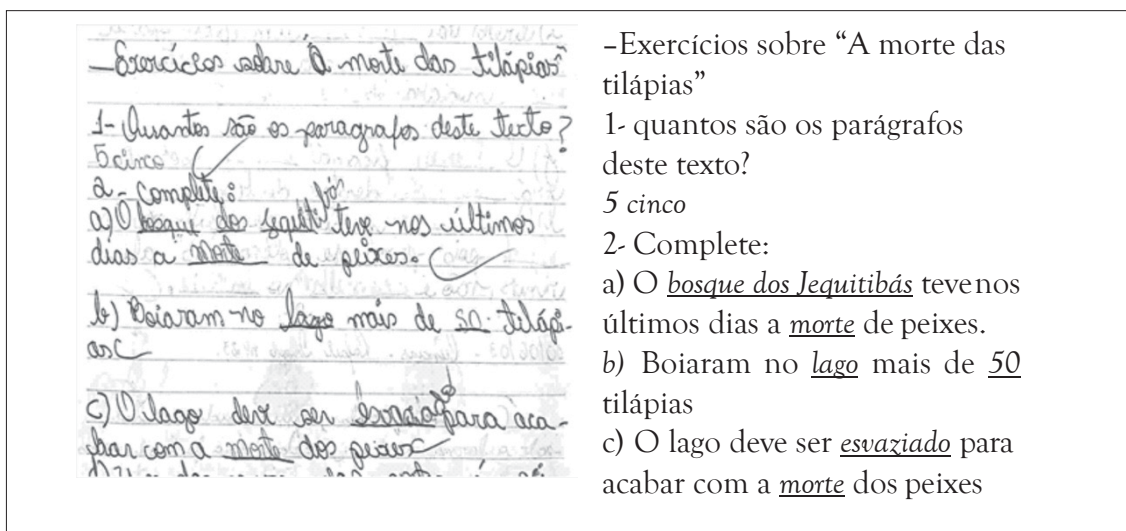 -Exercícios sobre "A morte das tilápias"
1- Quantos são os paragrafos deste texto?
5 cinco
2- Complete:
bás
a) O bosque dos Jequiti teve nos últimos
dias a morte de peixes.
b) Boiaram no lago mais de 50 tilápi-
as
c) O lago deve ser esvaziado para aca-
bar com a morte dos peixes
–Exercícios sobre “A morte das
tilápias”
1- quantos são os parágrafos
deste texto?
5 cinco
2- Complete:
a) O bosque dos Jequitibás teve nos
últimos dias a morte de peixes.
b) Boiaram no lago mais de 50
tilápias
c) O lago deve ser esvaziado para
acabar com a morte dos peixes